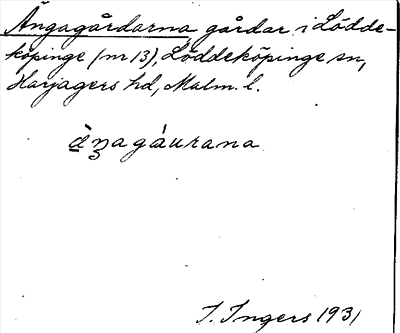 Ängagårdarna, gårdar i Lödde-
köpinge (nr 13), Löddeköpinge sn,
Harjagers hd, Malm. l.
I. Ingers 1931